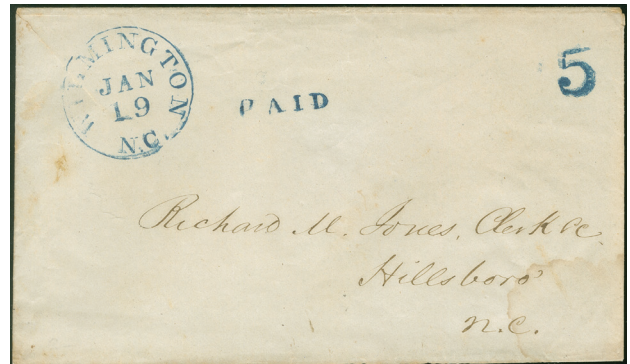 WILMINGTON
JAN
19
N.C.
PAID
5
Richard M. Jones, Clerk &c
Hillsboro'
N.C.